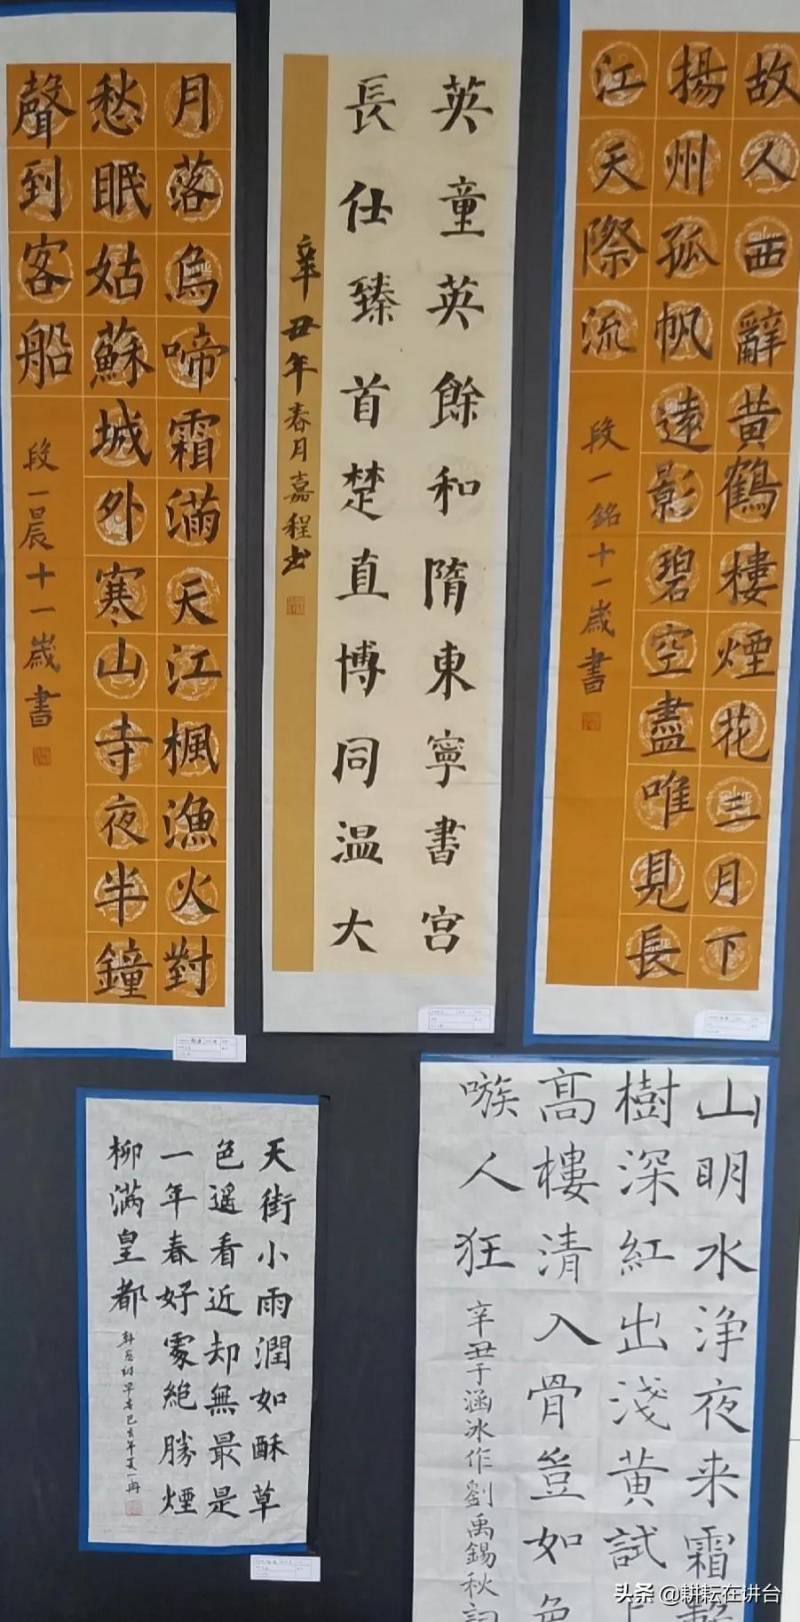 月落烏啼霜滿天江楓漁火對
愁眠姑蘇城外寒山寺夜半鐘
聲到客船
段一晨十一歲書
英童英餘和隋東寧書宮
長仕臻首楚直博同温大
辛丑年春月嘉程书
故人西辭黃鶴樓煙花三月下
揚州孤帆遠影碧空盡唯見長
江天際流
段一銘十一歲書
天街小雨潤如酥草
色遥看近却無最是
一年春好處絶勝煙
柳滿皇都
山明水净夜来霜
樹深紅出淺黄試
高樓清入骨豈如色
嗾人狂
辛丑于涵冰作劉禹錫秋詞
头条 @耕耘在讲台